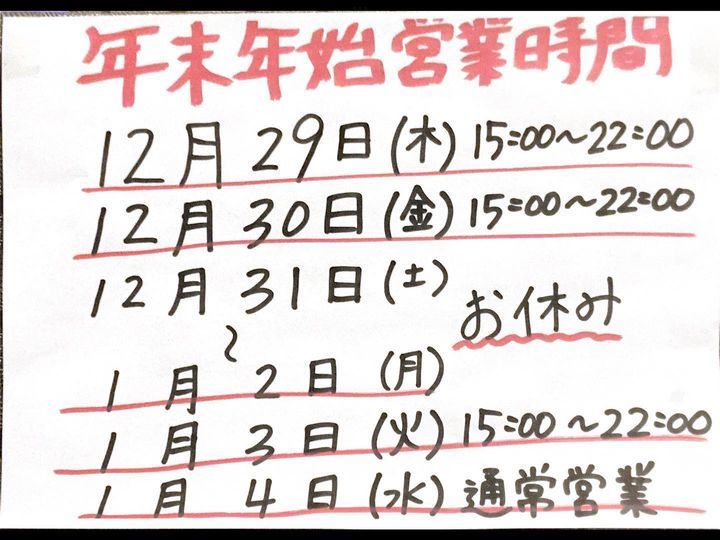 年末年始営業時間
12月29日(木) 15:00～22:00
12月30日(金) 15:00～22:00
12月31日(土)
～
お休み
1月2日(月)
1月3日(火) 15:00～22:00
1月4日(水) 通常営業